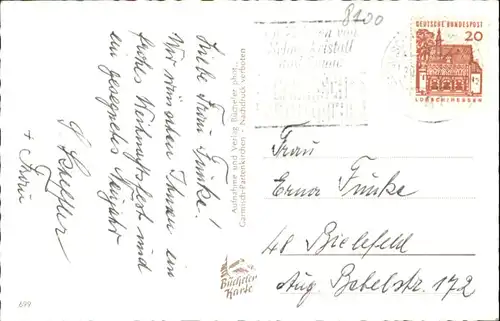 8100
DEUTSCHE BUNDESPOST
20
LORSCH/HESSEN
Liebe Frau Funke!
Wir wünschen Ihnen ein
frohes Weihnachtsfest und
ein gesegnetes Neujahr
+ Frau
Aufnahme und Verlag Bücheler phot.
Garmisch-Partenkirchen - Nachdruck verboten
Bücheler
Karte
Frau
Erna Funke
48 Bielefeld
Aug. Bebelstr. 172
699